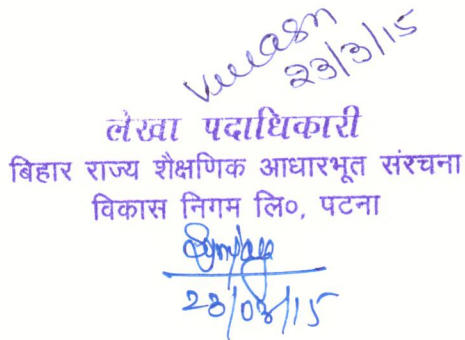 23/3/15
लेखा पदाधिकारी
बिहार राज्य शैक्षणिक आधारभूत संरचना
विकास निगम लि०, पटना
23/03/15